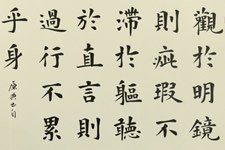 觀於明鏡
則疵瑕不
滯於軀聽
於直言則
過行不累
乎身